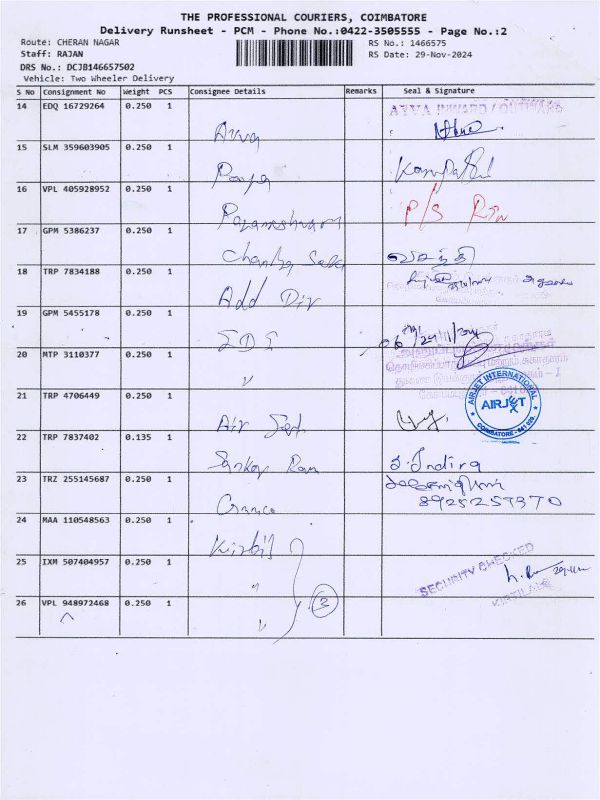 THE PROFESSIONAL COURIERS, COIMBATORE
Delivery Runsheet - PCM - Phone No.:0422-3505555 - Page No.:2
Route: CHERAN NAGAR
RS No.: 1466575
Staff: RAJAN
RS Date: 29-Nov-2024
DRS No.: DCJB146657502
Vehicle: Two Wheeler Delivery
S No Consignment No Weight PCS Consignee Details Remarks Seal & Signature
14 EDQ 16729264 0.250 1
15 SLM 359603905 0.250 1
Pooja
16 VPL 405928952 0.250 1
Parameshwari P/S
17 GPM 5386237 0.250 1
வசந்தி
18 TRP 7834188 0.250 1
Add Dir
19 GPM 5455178 0.250 1
20 MTP 3110377 0.250 1
21 TRP 4706449 0.250 1
AIRJET INTERNATIONAL
AIRJET
COIMBATORE - 641 020.
22 TRP 7837402 0.135 1
Sankar Ram S. Indira
23 TRZ 255145687 0.250 1
8925259370
24 MAA 110548563 0.250 1
25 IXM 507404957 0.250 1
SECURITY CHECKED
KIRTILALS
"
26 VPL 948972468 0.250 1
3